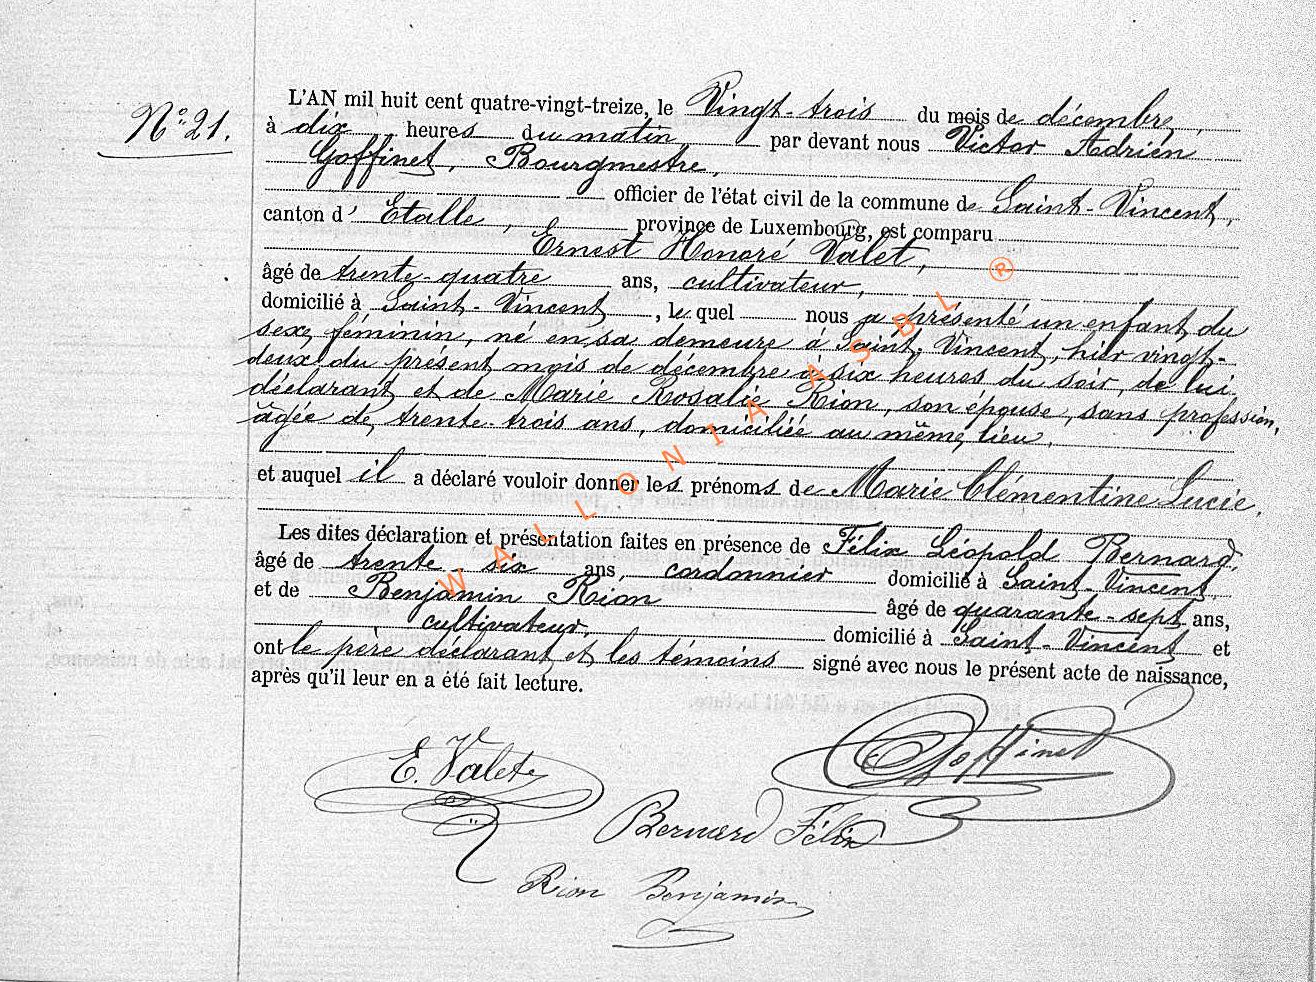 N° 21.
L'AN mil huit cent quatre-vingt-treize, le Vingt-trois du mois de décembre,
à dix heures du matin par devant nous Victor Adrien
Goffinet, Bourgmestre,
officier de l'état civil de la commune de Saint-Vincent,
canton d' Etalle, province de Luxembourg, est comparu
Ernest Honoré Valet,
âgé de trente-quatre ans, cultivateur,
domicilié à Saint-Vincent, le quel nous a présenté un enfant du
sexe féminin, né en sa demeure à Saint-Vincent, hier vingt-
deux du présent mois de décembre à six heures du soir, de lui
déclarant et de Marie Rosalie Rion, son épouse, sans profession,
âgée de trente-trois ans, domiciliée au même lieu.
et auquel il a déclaré vouloir donner les prénoms de Marie Clémentine Lucie.
Les dites déclaration et présentation faites en présence de Félix Léopold Bernard,
âgé de trente-six ans, cordonnier domicilié à Saint-Vincent,
et de Benjamin Rion âgé de quarante-sept ans,
cultivateur, domicilié à Saint-Vincent et
ont le père déclarant et les témoins signé avec nous le présent acte de naissance,
après qu'il leur en a été fait lecture.
E. Valet
Goffinet
Bernard Félix
Rion Benjamin
WALLONIA ASBL ®